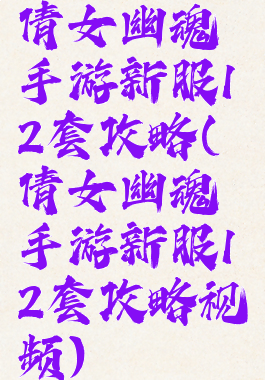 倩女幽魂
手游新服1
2套攻略(
倩女幽魂
手游新服1
2套攻略视
频)